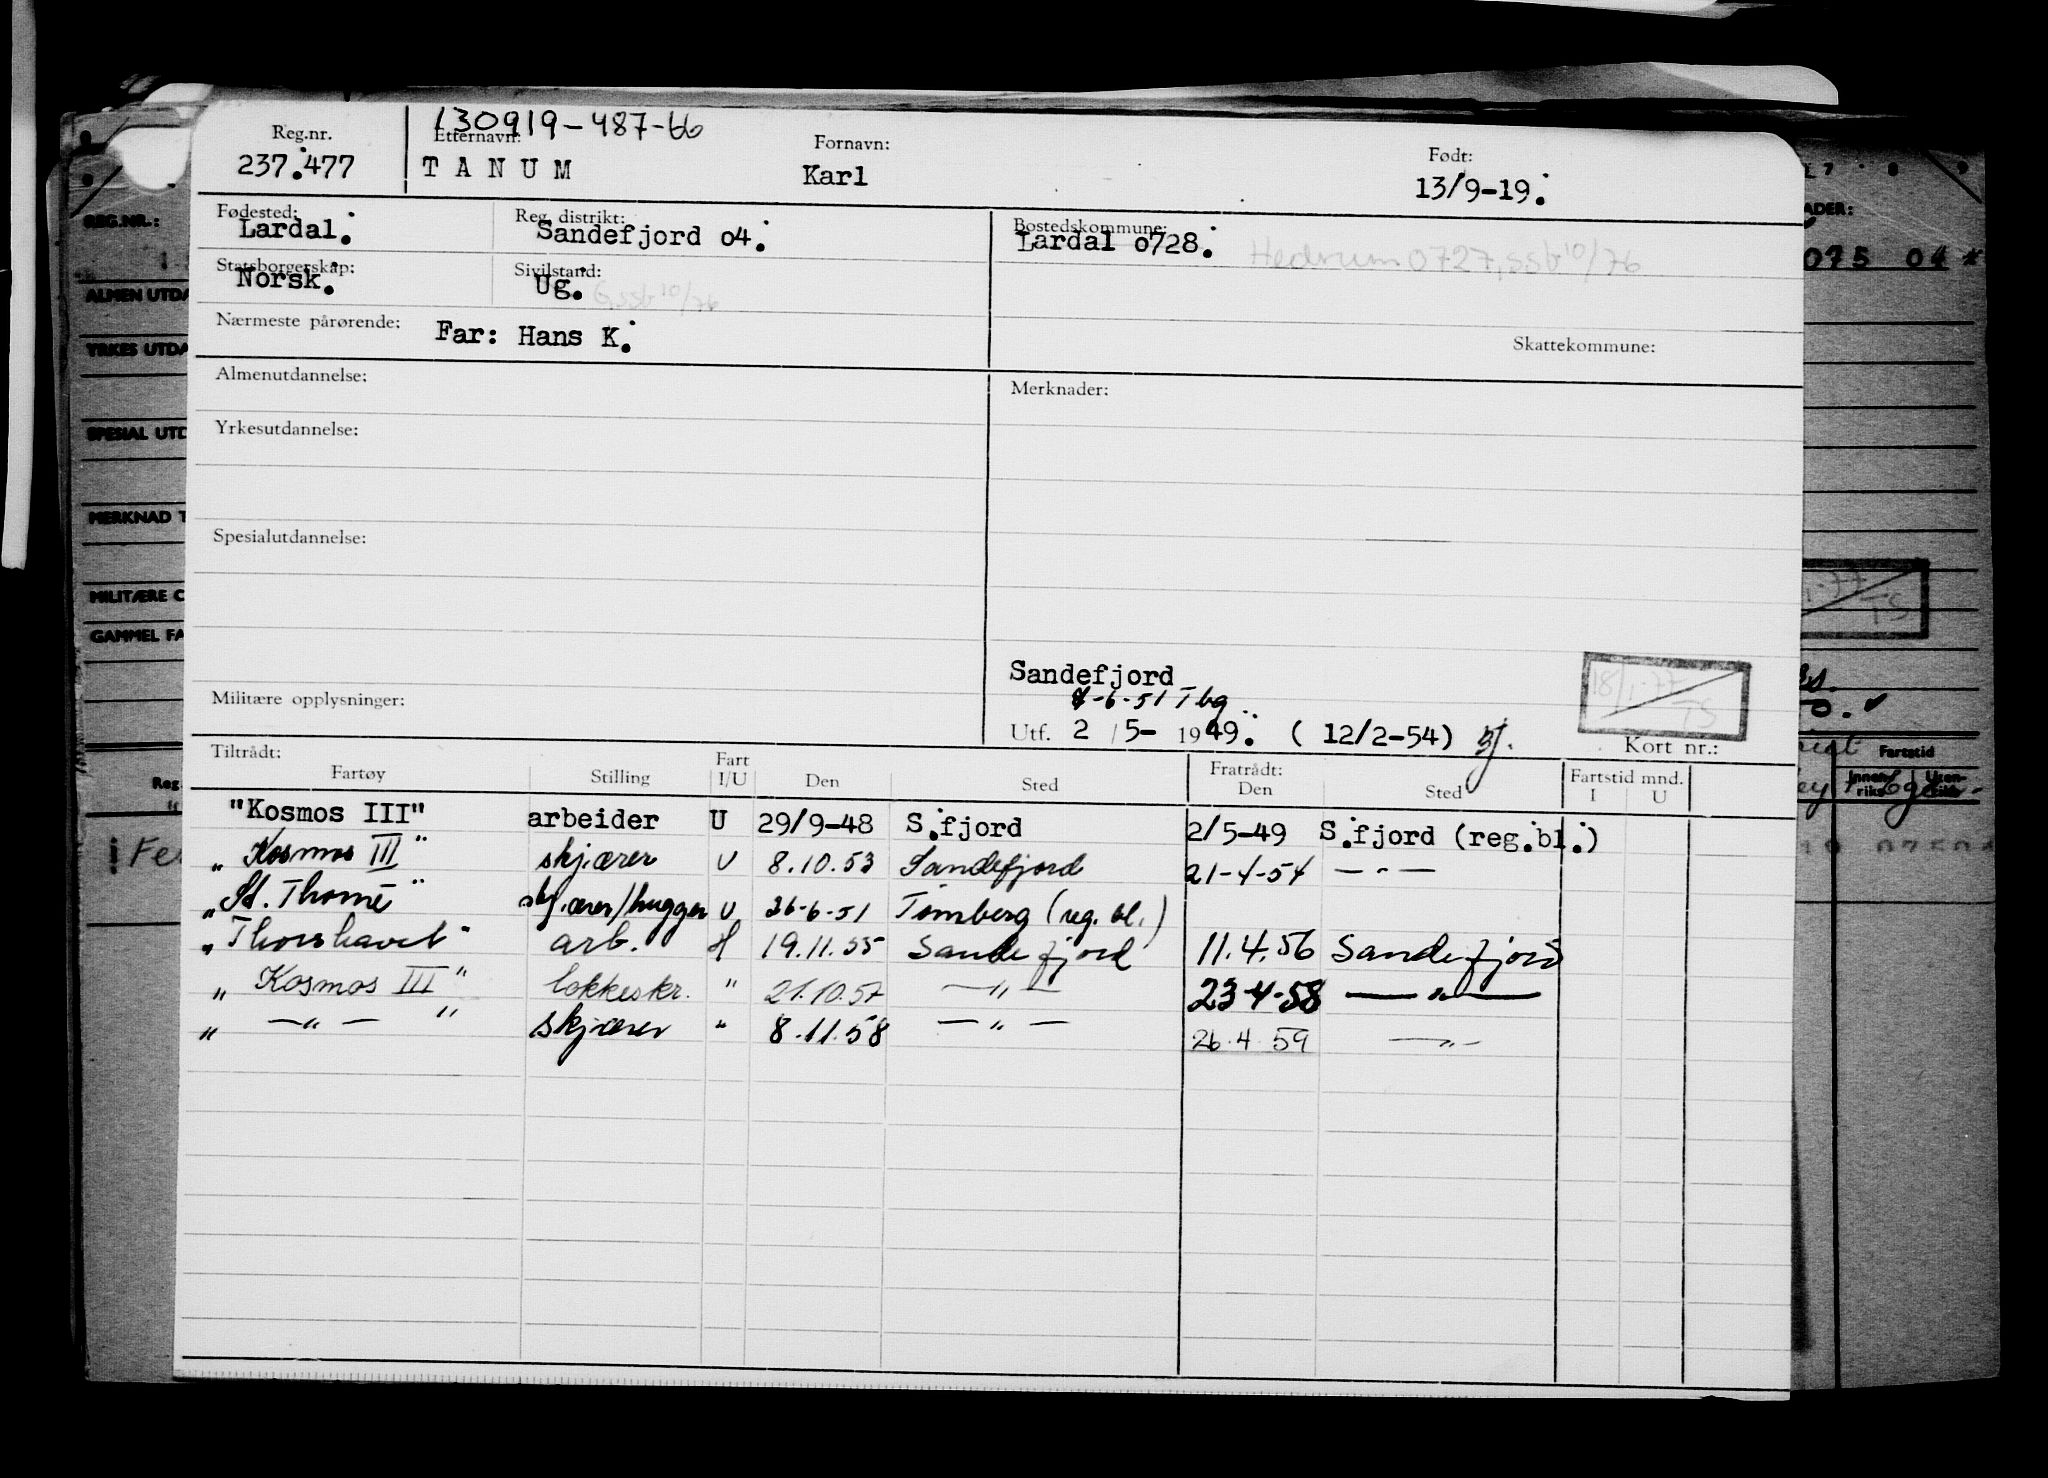 130919-487-66
Reg.nr. Etternavn: Fornavn: Født:
237.477 TANUM Karl 13/9-19.
Fødested: Reg. distrikt: Bostedskommune:
Lardal. Sandefjord o4. Lardal o728. Hedrum 0727, ssb 10/76
Statsborgerskap: Sivilstand:
Norsk. Ug. G, ssb 10/76
Nærmeste pårørende: Far: Hans K. Skattekommune:
Almenutdannelse: Merknader:
Yrkesutdannelse:
Spesialutdannelse:
Sandefjord
Militære opplysninger: -6-51 Tbg
18/1-77 TS
Utf. 2 / 5- 1949. ( 12/2-54) Kort nr.:
Tiltrådt: Fratrådt:
Fartøy Stilling Fart I/U Den Sted Den Sted Fartstid mnd. I U
"Kosmos III" arbeider U 29/9-48 S.fjord 2/5-49 S.fjord (reg.bl.)
"Kosmos III" skjærer U 8.10.53 Sandefjord 21-4-54 — " —
"St. Thomé" skjærer/hugger U 26-6-51 Tønsberg (reg. bl.)
"Thorshavet" arb. H 19.11.55 Sandefjord 11.4.56 Sandefjord
"Kosmos III" lokkeskr. " 21.10.57 — " — 23-4-58 — " —
" — " — " skjærer " 8.11.58 — " — 26.4.59 — " —
REG.NR.:
ALMEN UTDA
YRKES UTDA
SPESIAL UTD
MERKNAD T
MILITÆRE O
GAMMEL FA
Reg
ADER:
075 04 *
1-77 TS
Fartstid
Innenriks Utenriks